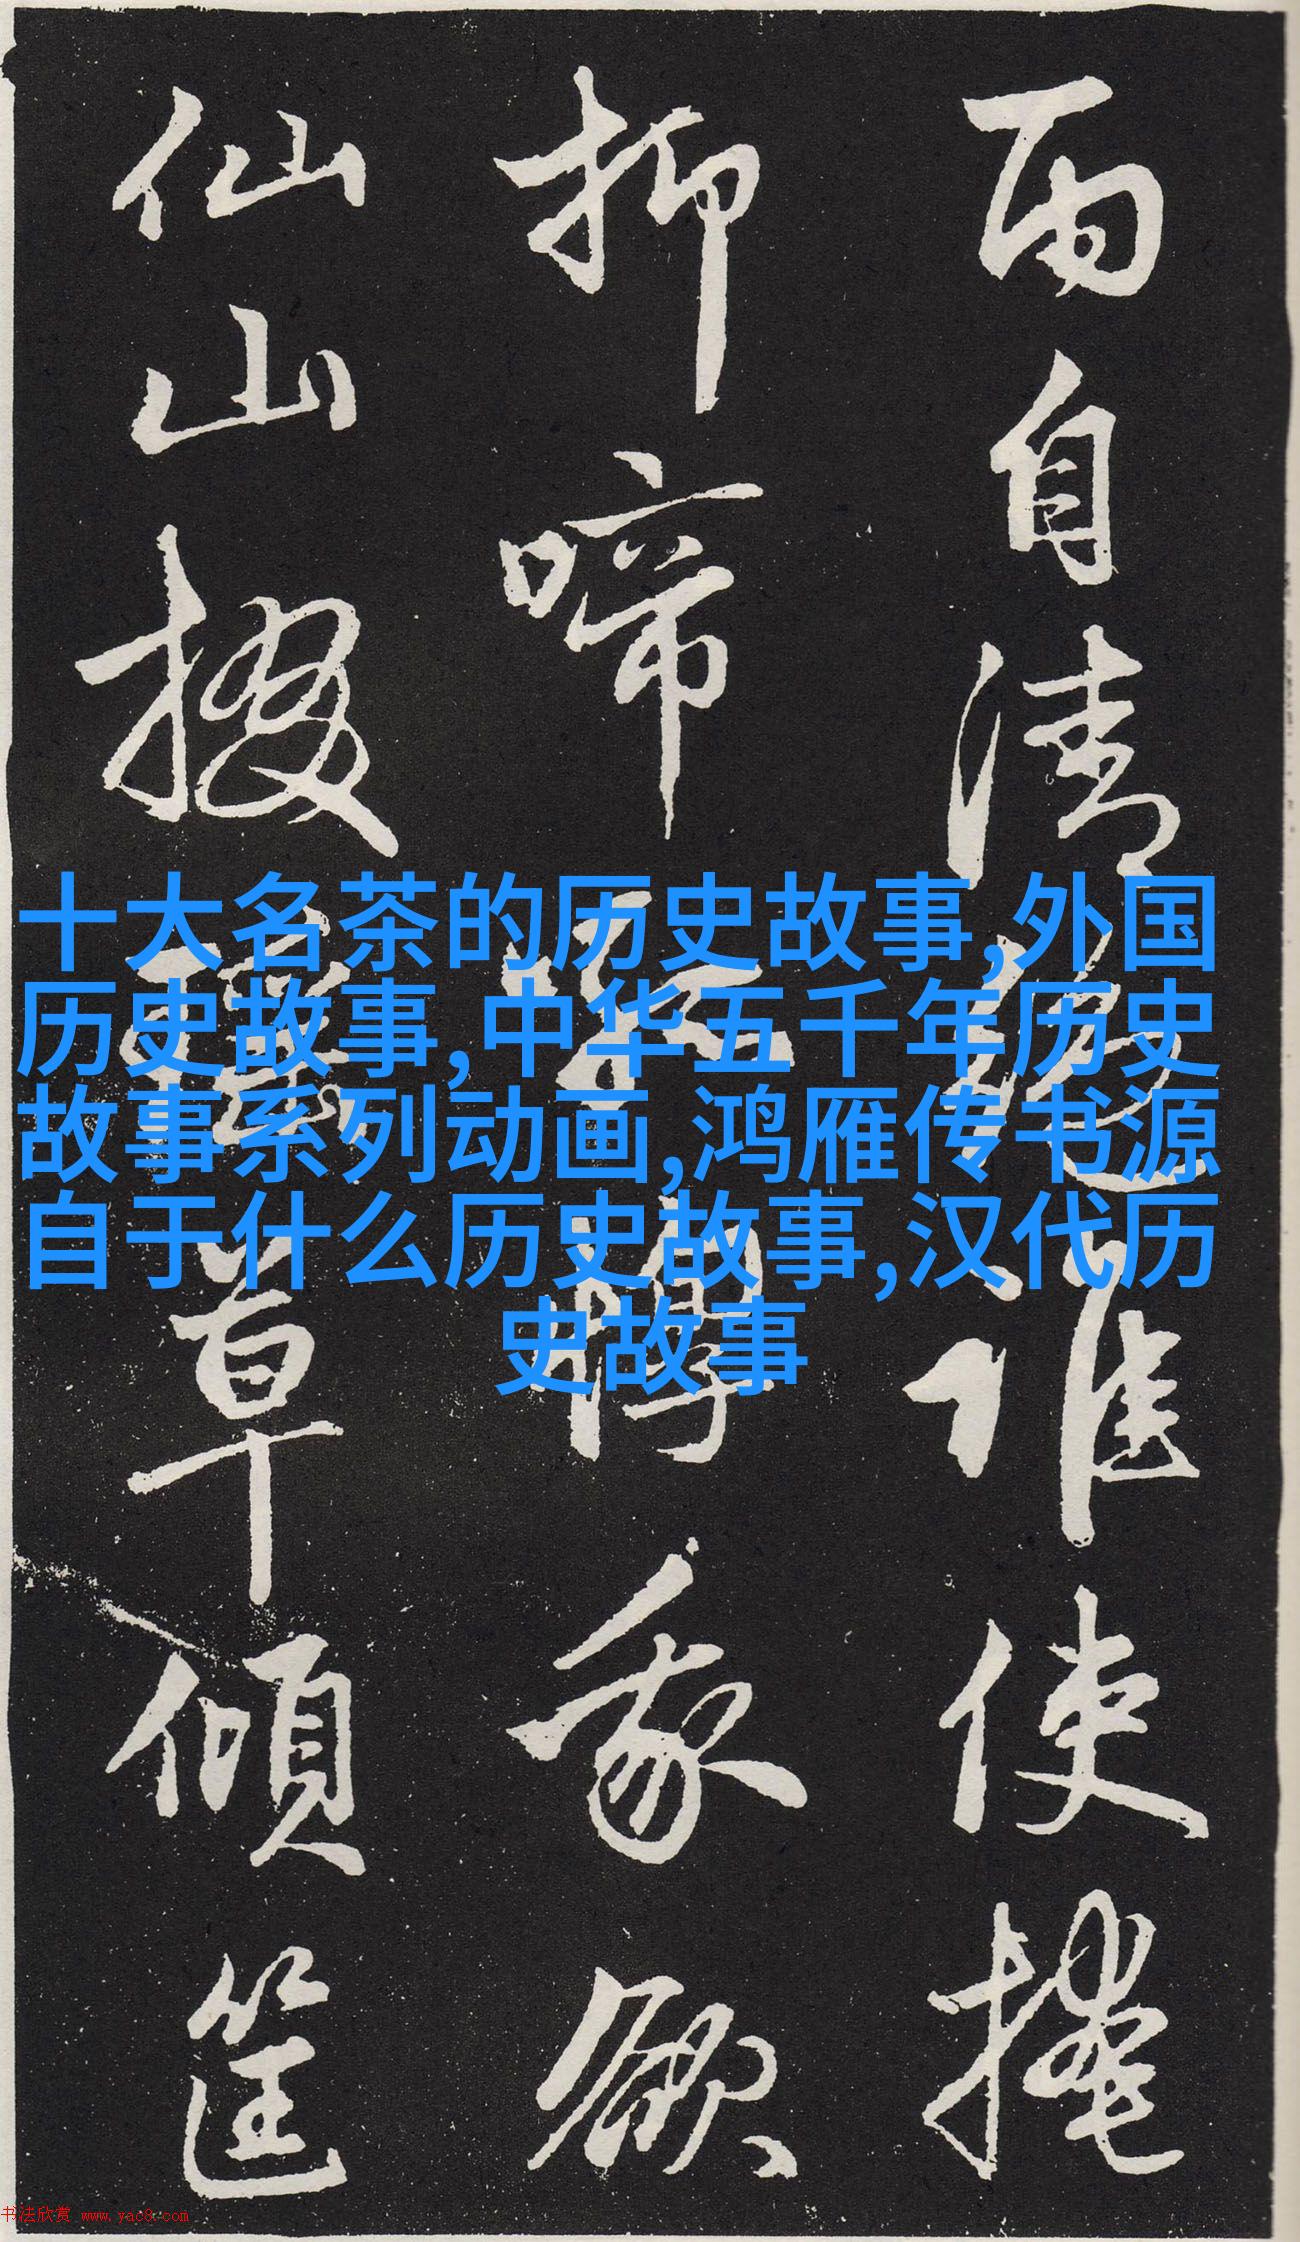 雨自清誰使掩
抑啼我欲
仙山掇瑶草傾筐
十大名茶的历史故事,外国
历史故事,中华五千年历史
故事系列动画,鸿雁传书源
自于什么历史故事,汉代历
史故事
书法欣赏 www.yac8.com